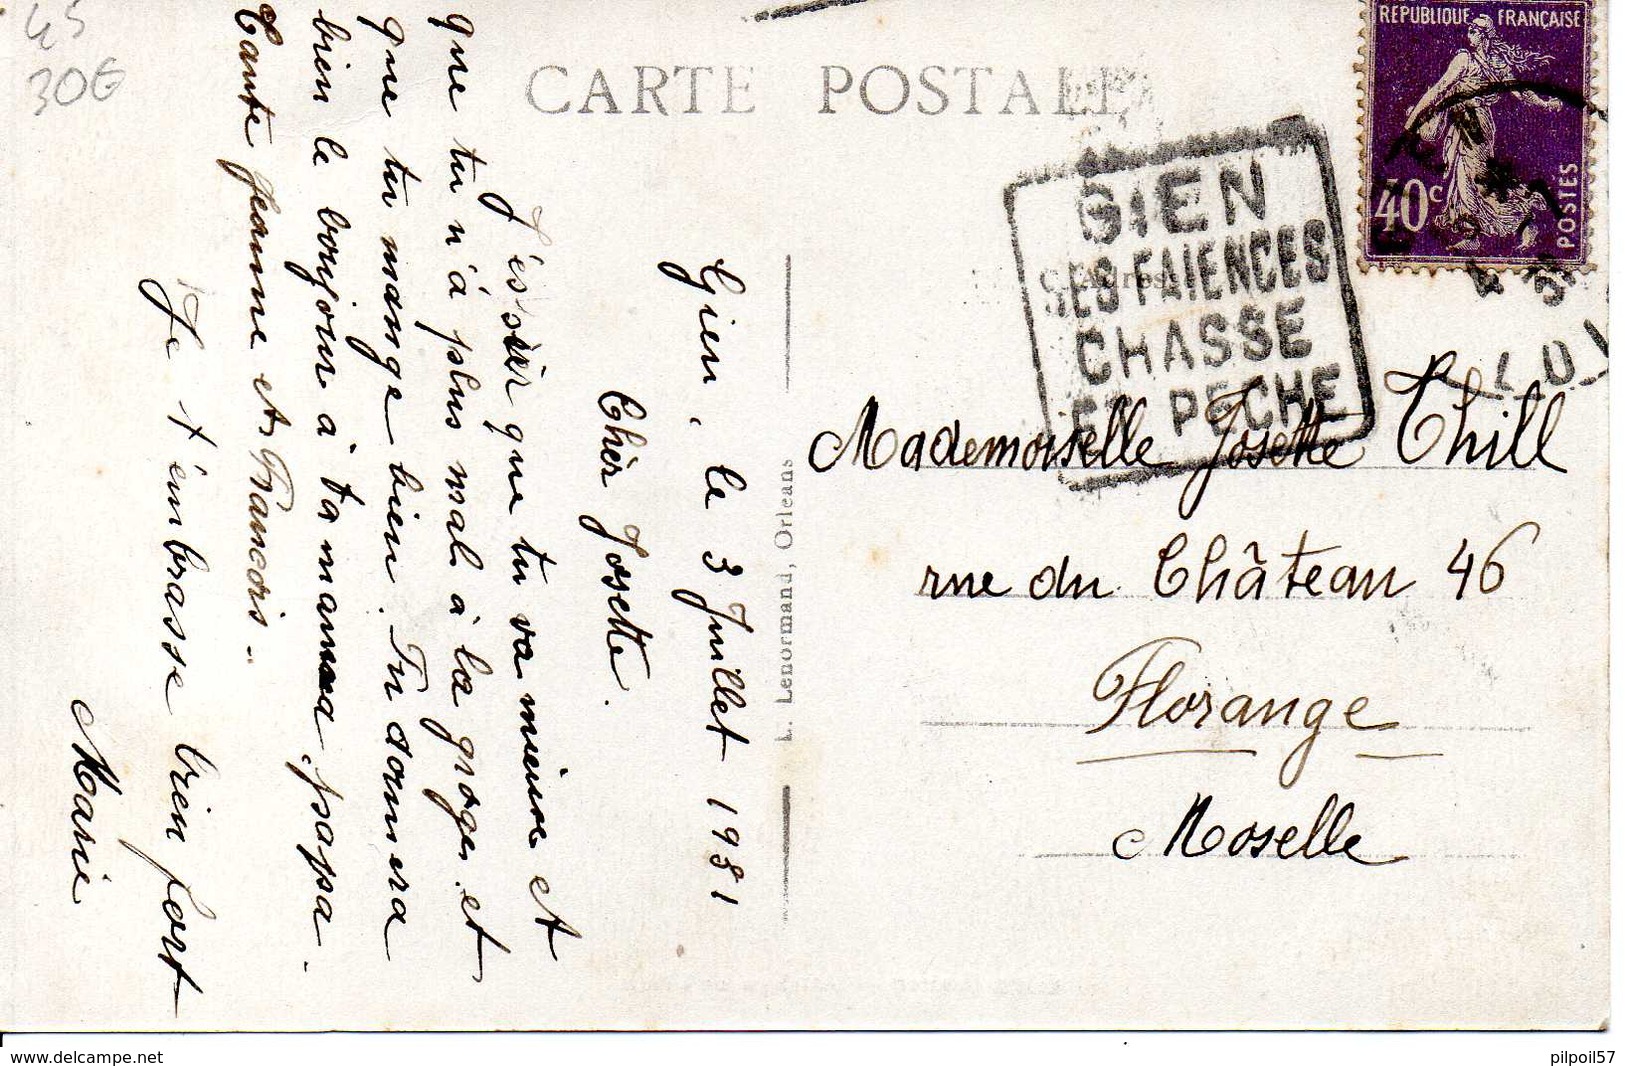 45
30€
CARTE POSTALE
REPUBLIQUE FRANÇAISE
40c
POSTES
GIEN
SES FAIENCES
CHASSE
ET PECHE
Gien, le 3 Juillet 1931
Chèr Josette.
J'éspér que tu va mieux et
que tu n'à plus mal à la groges et
que tu mange bien. Tu donnera
bien le boujour à ta maman papa.
Tante Jeanne et Francois.
Je t'embrasse bien fort
Marie
L. Lenormand, Orléans
Mademoiselle Josette Thill
rue du Château 46
Florange
Moselle
www.delcampe.net
pilpoil57